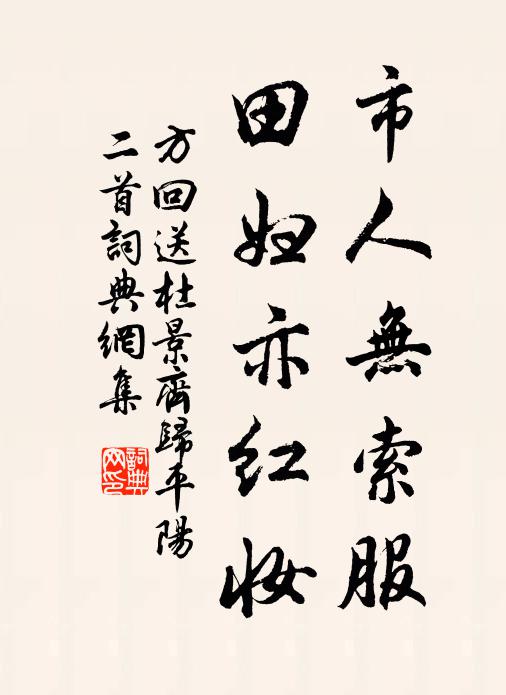 市人無索服
田妇亦红妆
方回送杜景齋歸平陽
二首詞典網集
詞典网印